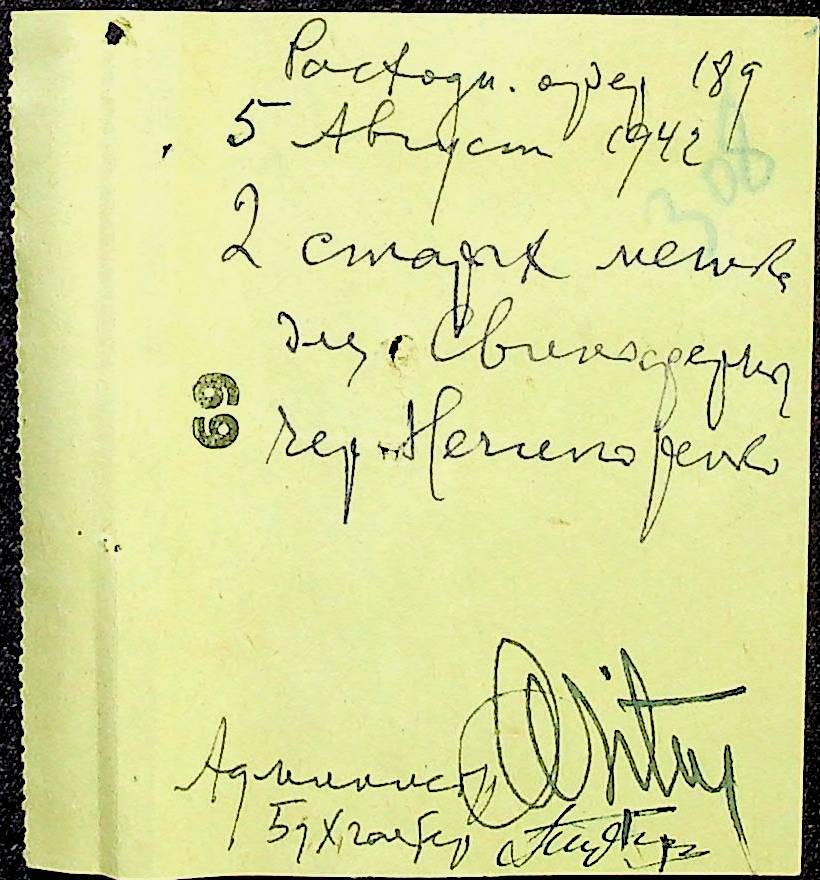 Расходн. ордер 189
5 Август 1942
308
2 старых мешка
для Свинофермы
69
чер. Нечипоренко
Администр
Бухгалтер